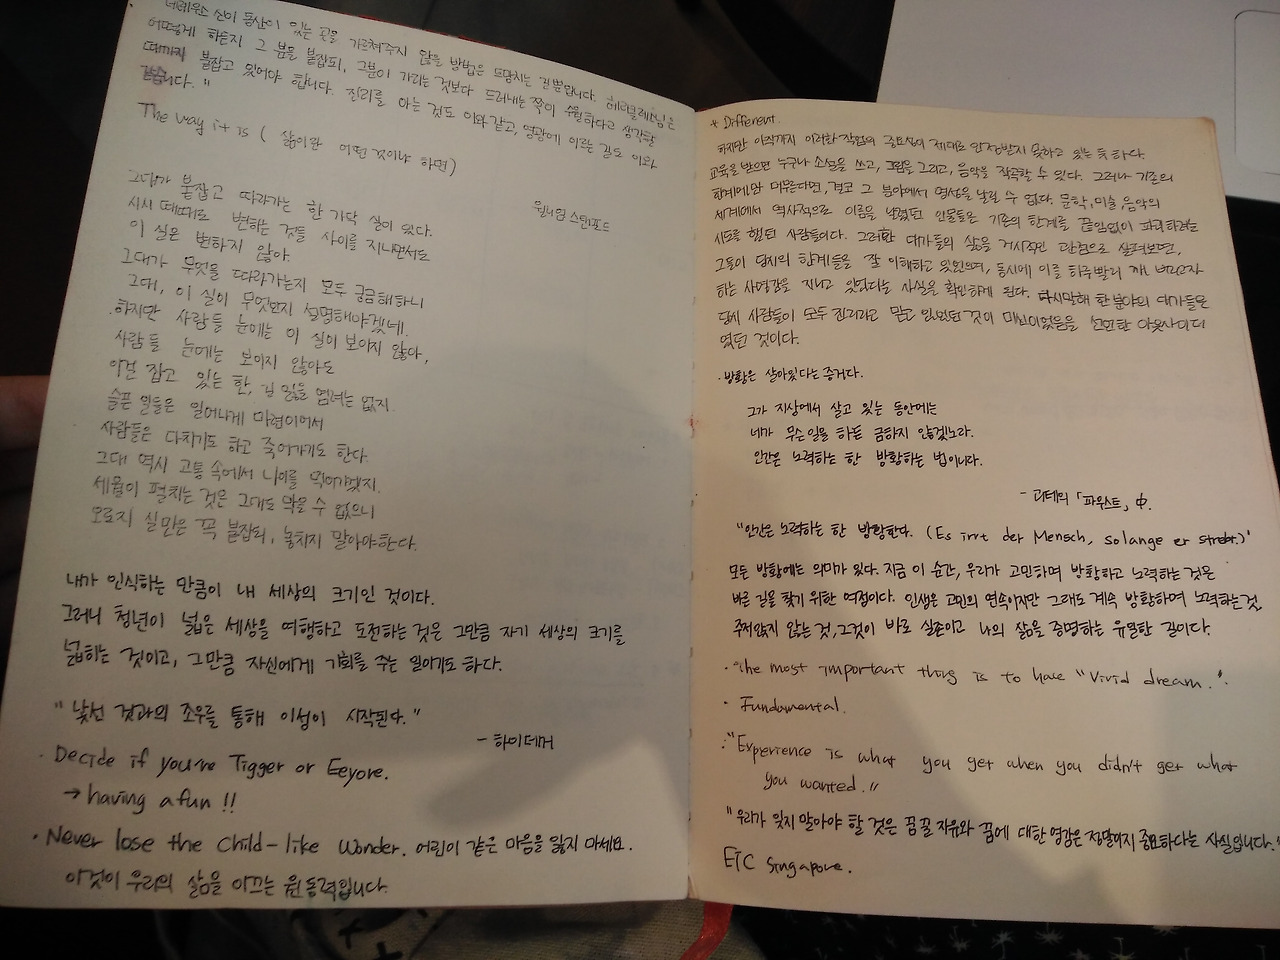 네레우스 신이 동산이 있는 곳을 가르쳐주지 않을 방법은 도망치는 길뿐입니다. 헤라클레스님은
어떻게 하든지 그 분을 붙잡되, 그분이 가리는 것보다 드러내는 쪽이 수월하다고 생각할
때까지 붙잡고 있어야 합니다. 진리를 아는 것도 이와 같고, 영광에 이르는 길도 이와
같습니다."
The way it is ( 삶이란 어떤 것이냐 하면)
윌리엄 스탠포드
그대가 붙잡고 따라가는 한 가닥 실이 있다.
시시 때때로 변하는 것들 사이를 지나면서도
이 실은 변하지 않아.
그대가 무엇을 따라가는지 모두 궁금해하니
그대, 이 실이 무엇인지 설명해야겠네.
하지만 사람들 눈에는 이 실이 보이지 않아,
사람들 눈에는 보이지 않아도
이걸 잡고 있는 한, 길 잃을 염려는 없지.
슬픈 일들은 일어나게 마련이어서
사람들은 다치기도 하고 죽어가기도 한다.
그대 역시 고통 속에서 나이를 먹어가겠지.
세월이 펼치는 것은 그대도 막을 수 없으니
오로지 실만은 꼭 붙잡되, 놓치지 말아야한다.
내가 인식하는 만큼이 내 세상의 크기인 것이다.
그러니 청년이 넓은 세상을 여행하고 도전하는 것은 그만큼 자기 세상의 크기를
넓히는 것이고, 그만큼 자신에게 기회를 주는 일이기도 하다.
"낯선 것과의 조우를 통해 이성이 시작된다."
- 하이데거
· Decide if you're Tigger or Eeyore.
→ having a fun !!
· Never lose the Child-like Wonder. 어린이 같은 마음을 잃지 마세요.
이것이 우리의 삶을 이끄는 원동력입니다.
* Different.
하지만 아직까지 이러한 작업의 중요성이 제대로 인정받지 못하고 있는 듯 하다.
교육을 받으면 누구나 소설을 쓰고, 그림을 그리고, 음악을 작곡할 수 있다. 그러나 기존의
한계에만 머문다면, 결코 그 분야에서 명성을 날릴 수 없다. 문학, 미술, 음악의
세계에서 역사적으로 이름을 날렸던 인물들은 기존의 한계를 끊임없이 파괴하려는
시도를 했던 사람들이다. 그러한 대가들의 삶을 거시적인 관점으로 살펴보면,
그들이 당시의 한계들을 잘 이해하고 있었으며, 동시에 이를 타파하고자
하는 사명감을 지니고 있었다는 사실을 확인하게 된다. 다시말해 한 분야의 대가들은
당시 사람들이 모두 진리라고 믿고 있었던 것이 미신이었음을 선언한 아웃사이더
였던 것이다.
· 방황은 살아있다는 증거다.
그가 지상에서 살고 있는 동안에는
네가 무슨 일을 하든 금하지 않겠노라.
인간은 노력하는 한 방황하는 법이니라.
- 괴테의 「파우스트」 中.
"인간은 노력하는 한 방황한다. (Es irrt der Mensch, solange er strebt.)"
모든 방황에는 의미가 있다. 지금 이 순간, 우리가 고민하며 방황하고 노력하는 것은
바른 길을 찾기 위한 여정이다. 인생은 고민의 연속이지만 그래도 계속 방황하며 노력하는것,
주저앉지 않는 것, 그것이 바로 실존이고 나의 삶을 증명하는 유일한 길이다.
· The most important thing is to have "Vivid dream.".
· Fundamental.
· "Experience is what you get when you didn't get what
you wanted."
"우리가 잊지 말아야 할 것은 꿈꿀 자유와 꿈에 대한 영감은 정말이지 중요하다는 사실입니다."
ETC Singapore.